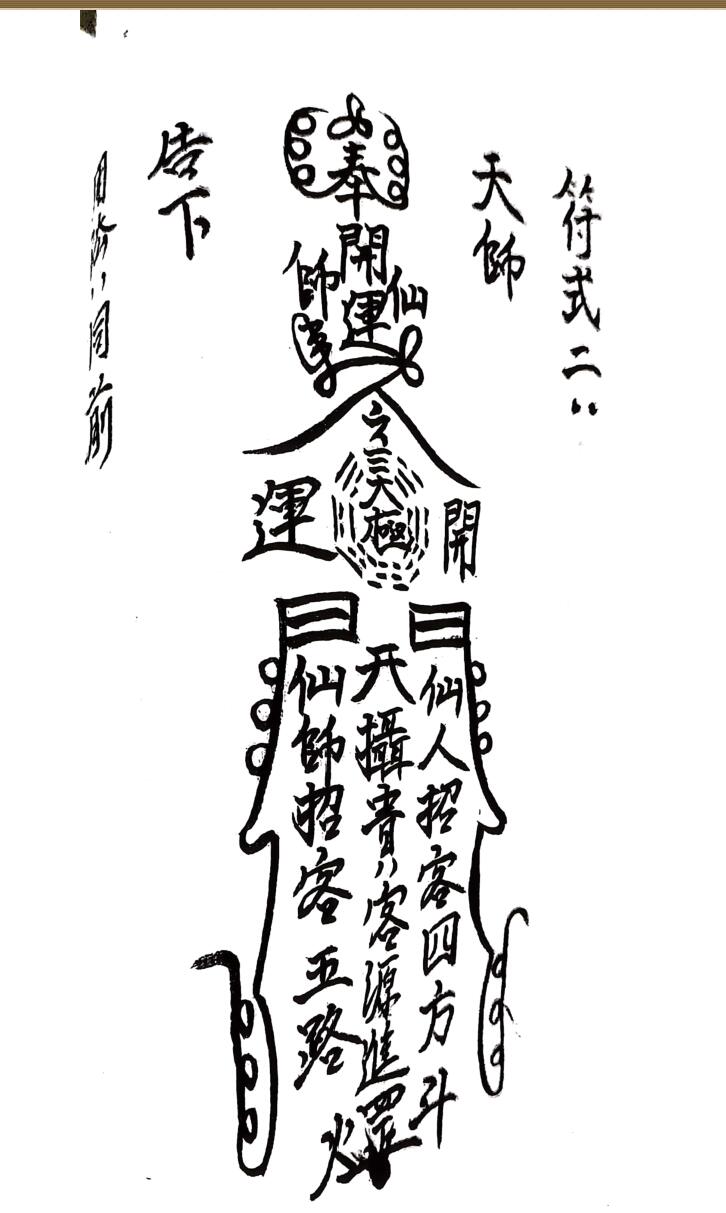 符式二:
天師
奉
開運
仙師
太極
開
運
仙人招客四方斗
攝貴客源進
仙師招客五路
告下
同前